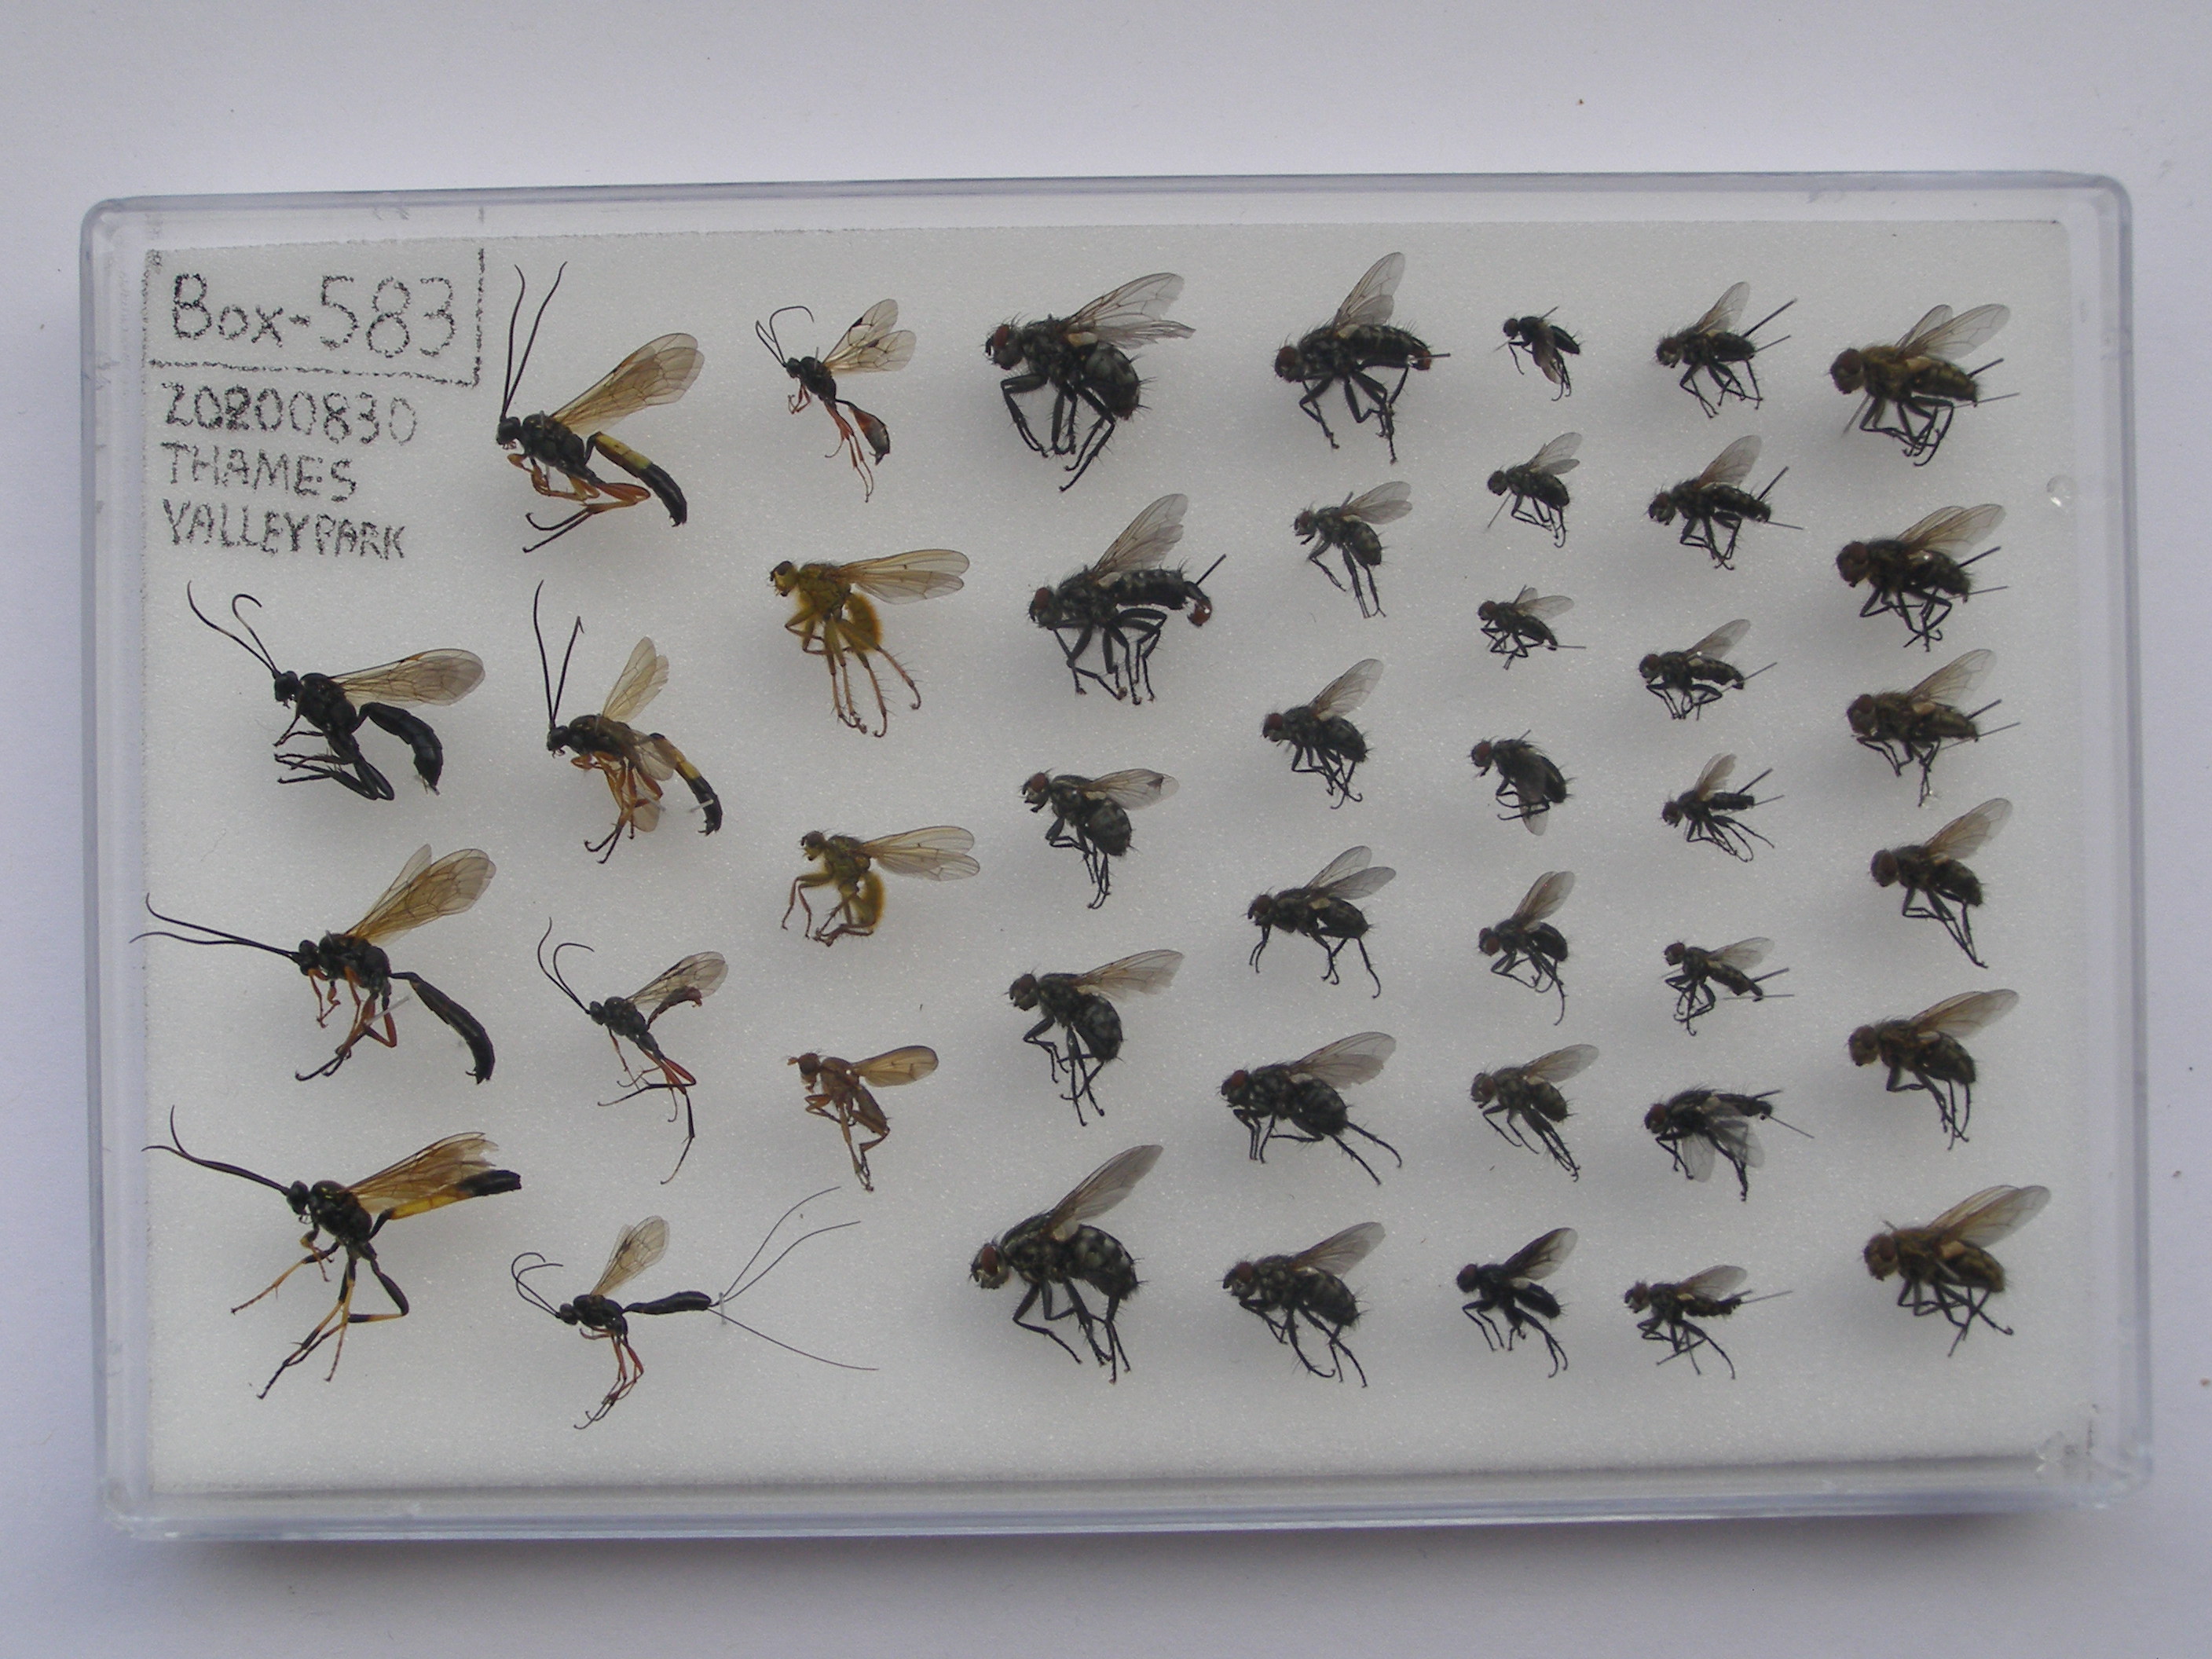 Box-583
20200830
THAMES
VALLEY PARK